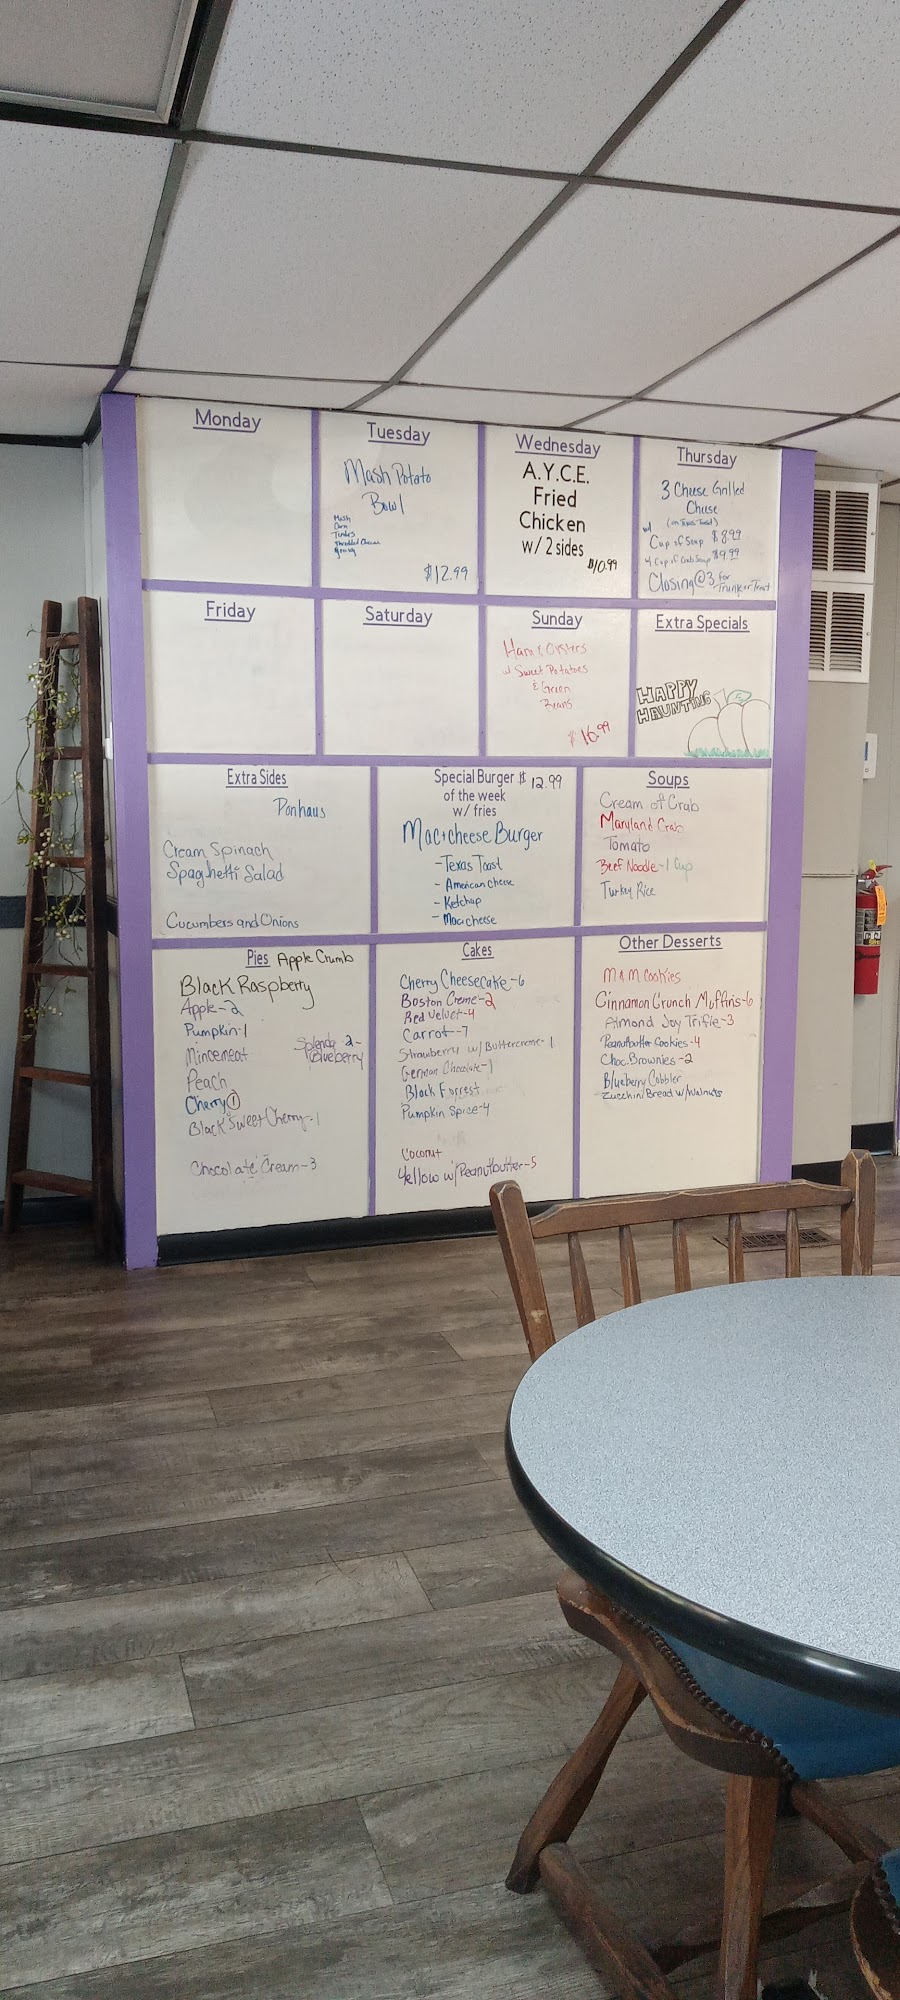 Monday
Tuesday
Mash Potato
Bowl
Mash
Corn
Tenders
Shredded Cheese
Gravy
$12.99
Wednesday
A.Y.C.E.
Fried
Chicken
w/ 2 sides
$10.99
Thursday
3 Cheese Grilled
Cheese
(on Texas Toast)
w/ Cup of Soup $8.99
w/ Cup of Crab Soup $9.99
Closing @ 3 for
Trunk or Treat
Friday
Saturday
Sunday
Ham & Oysters
w/ Sweet Potatoes
& Green
Beans
$16.99
Extra Specials
HAPPY
HAUNTING
Extra Sides
Panhaus
Cream Spinach
Spaghetti Salad
Cucumbers and Onions
Special Burger $12.99
of the week
w/ fries
Mac+cheese Burger
- Texas Toast
- American Cheese
- Ketchup
- Mac+cheese
Soups
Cream of Crab
Maryland Crab
Tomato
Beef Noodle - 1 Cup
Turkey Rice
Pies Apple Crumb
Black Raspberry
Apple - 2
Pumpkin - 1
Mincemeat
Splenda 2 -
Blueberry
Peach
Cherry 1
Black Sweet Cherry - 1
Chocolate Cream - 3
Cakes
Cherry Cheesecake - 6
Boston Creme - 2
Red Velvet - 4
Carrot - 7
Strawberry w/ Buttercreme - 1
German Chocolate - 1
Black Forrest
Pumpkin Spice - 4
Coconut
Yellow w/ Peanutbutter - 5
Other Desserts
M & M Cookies
Cinnamon Crunch Muffins - 6
Almond Joy Trifle - 3
Peanutbutter Cookies - 4
Choc. Brownies - 2
Blueberry Cobbler
Zucchini Bread w/ Walnuts